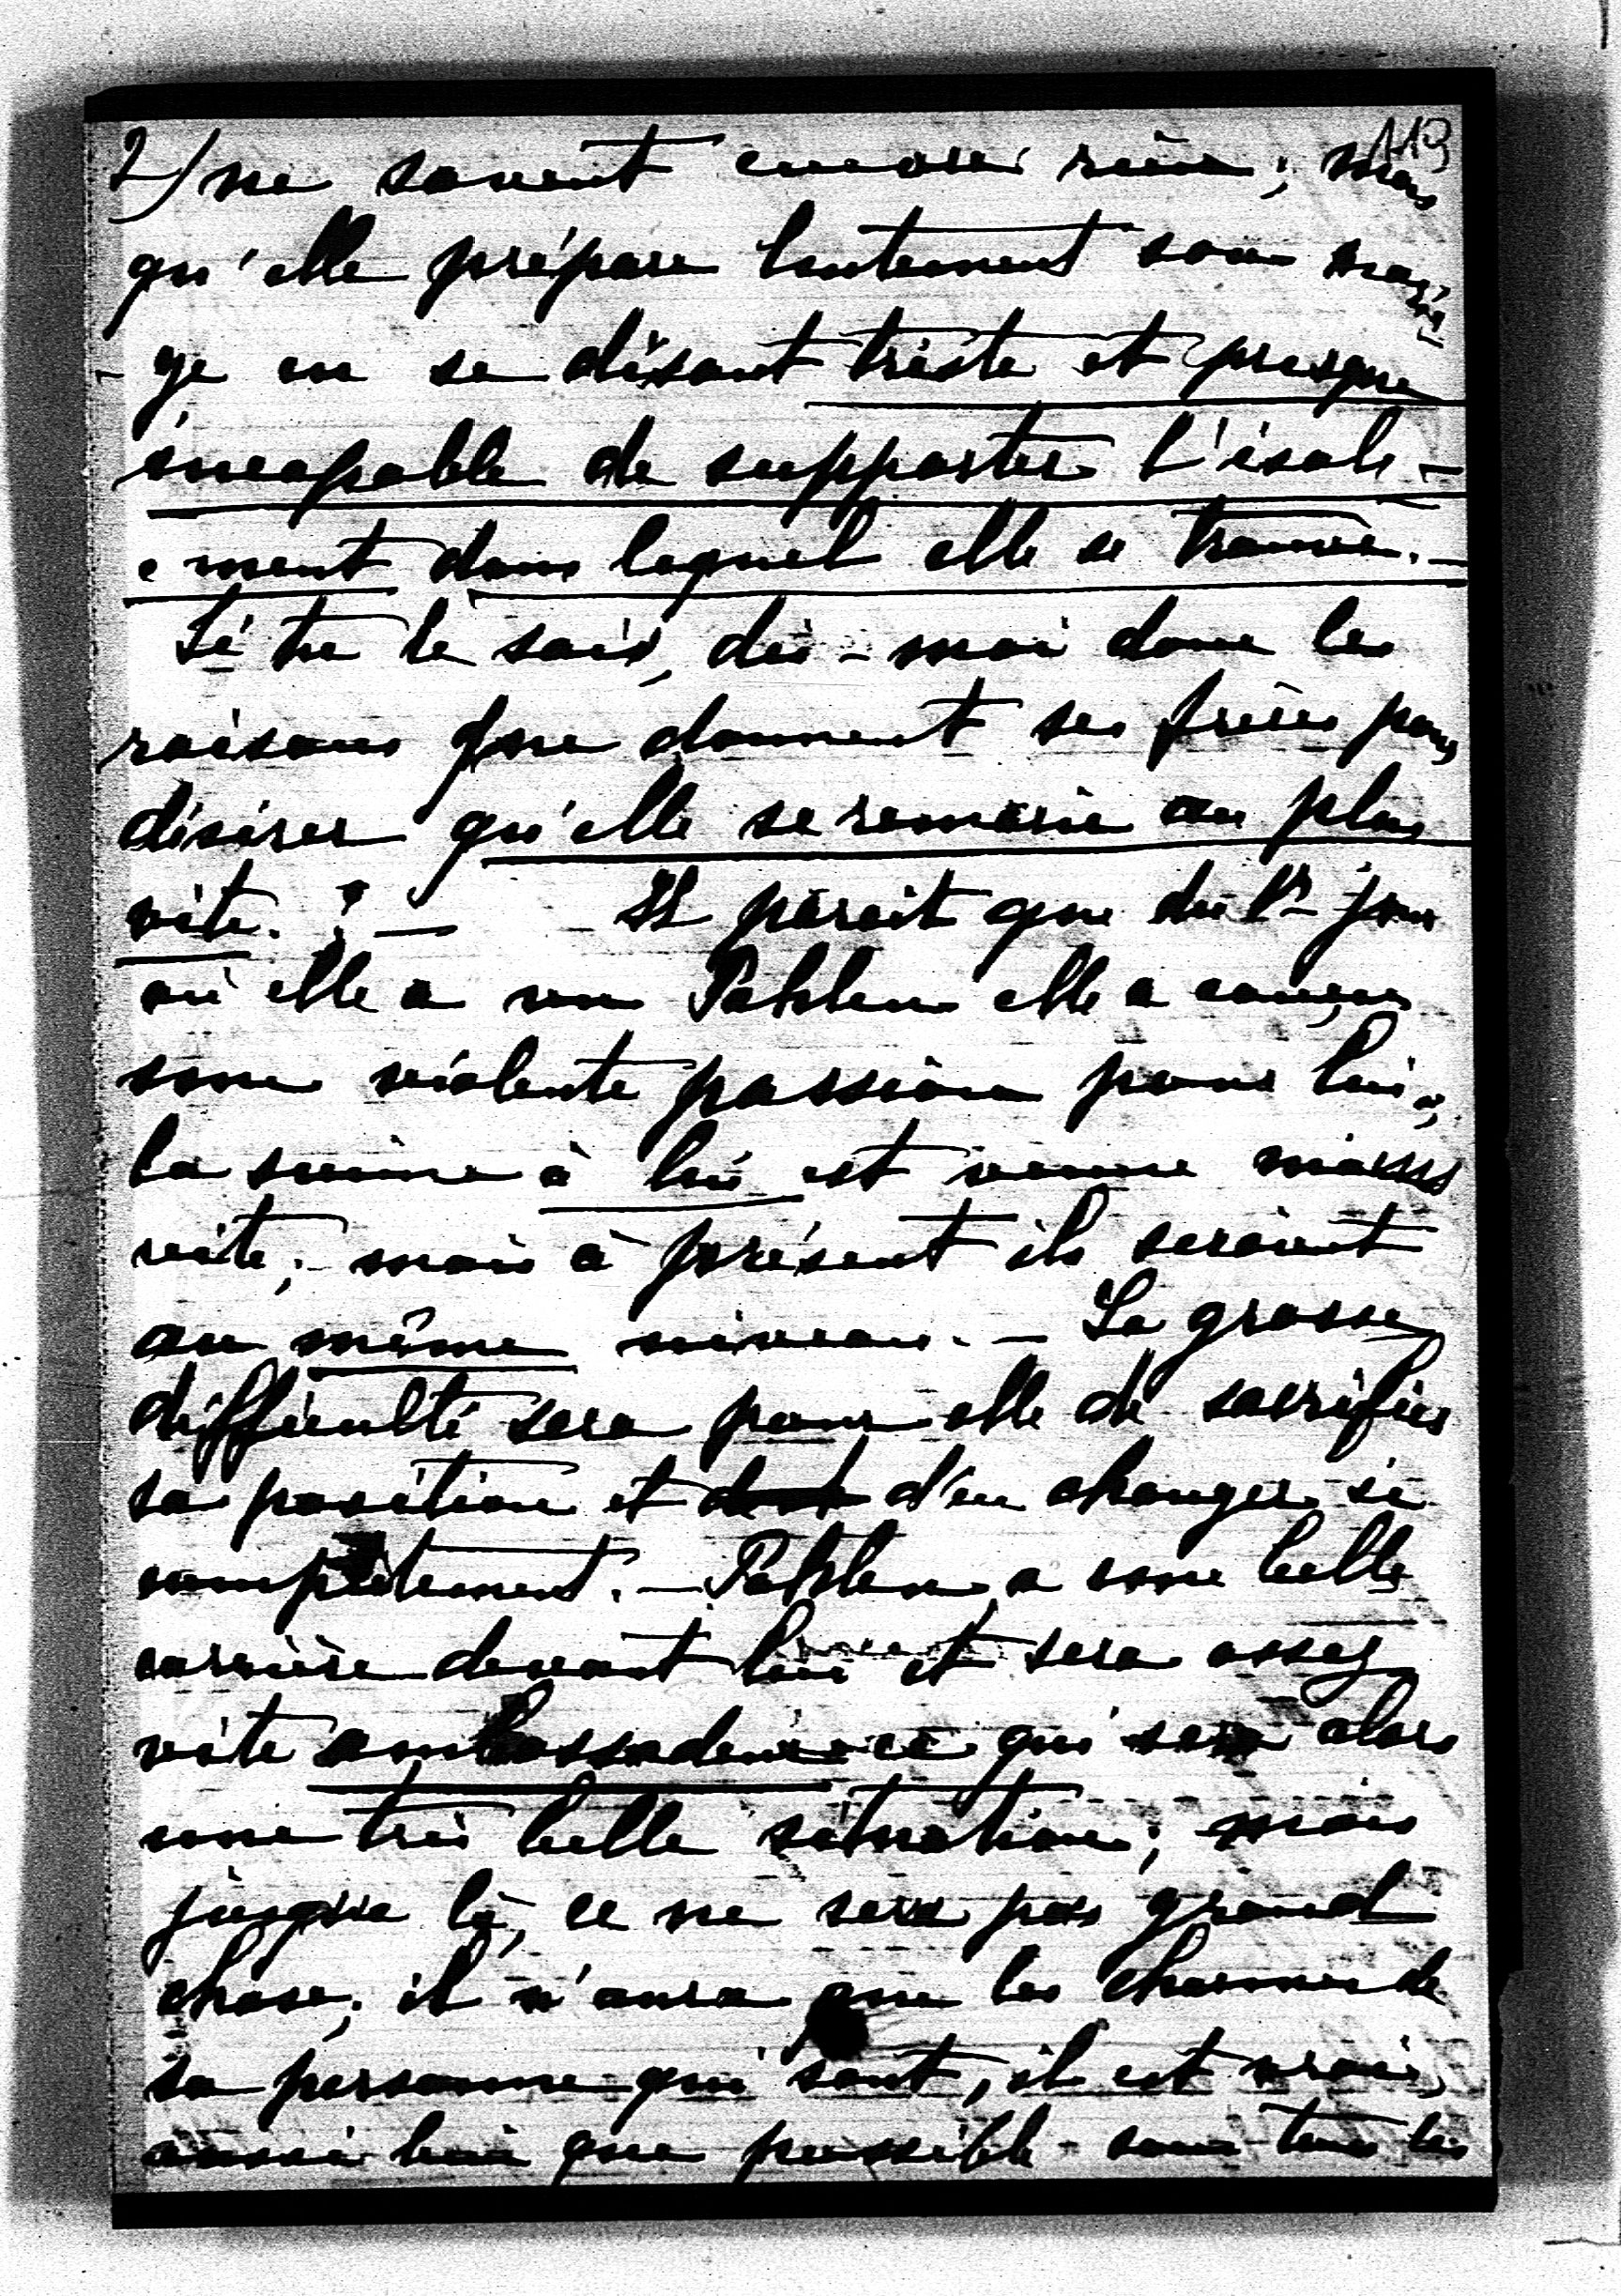 119
2) ne savent encore rien; mais
qu'elle prépare lentement son maria-
-ge en se disant triste et presque
incapable de supporter l'isole-
-ment dans lequel elle se trouve. -
Si tu le sais, dis-moi donc les
raisons que donnent ses frères pour
désirer qu'elle se remarie au plus
vite. ? - Il parait que dès l'1r jour
où elle a vu Pahlen elle a conçu
une violente passion pour lui,
la sienne à lui est venue moins
vite; mais à présent ils seraient
au même niveau. - La grosse
difficulté sera pour elle de sacrifier
sa position et d'en changer si
complètement. - Pahlen a une belle
carrière devant lui et sera assez
vite ambassadeur ce qui sera alors
une très belle situation; mais
jusque là, ce ne sera pas grand
chose; il n'aura que les charmes de
sa personne qui sont, il est vrai,
aussi bien que possible sous tous les